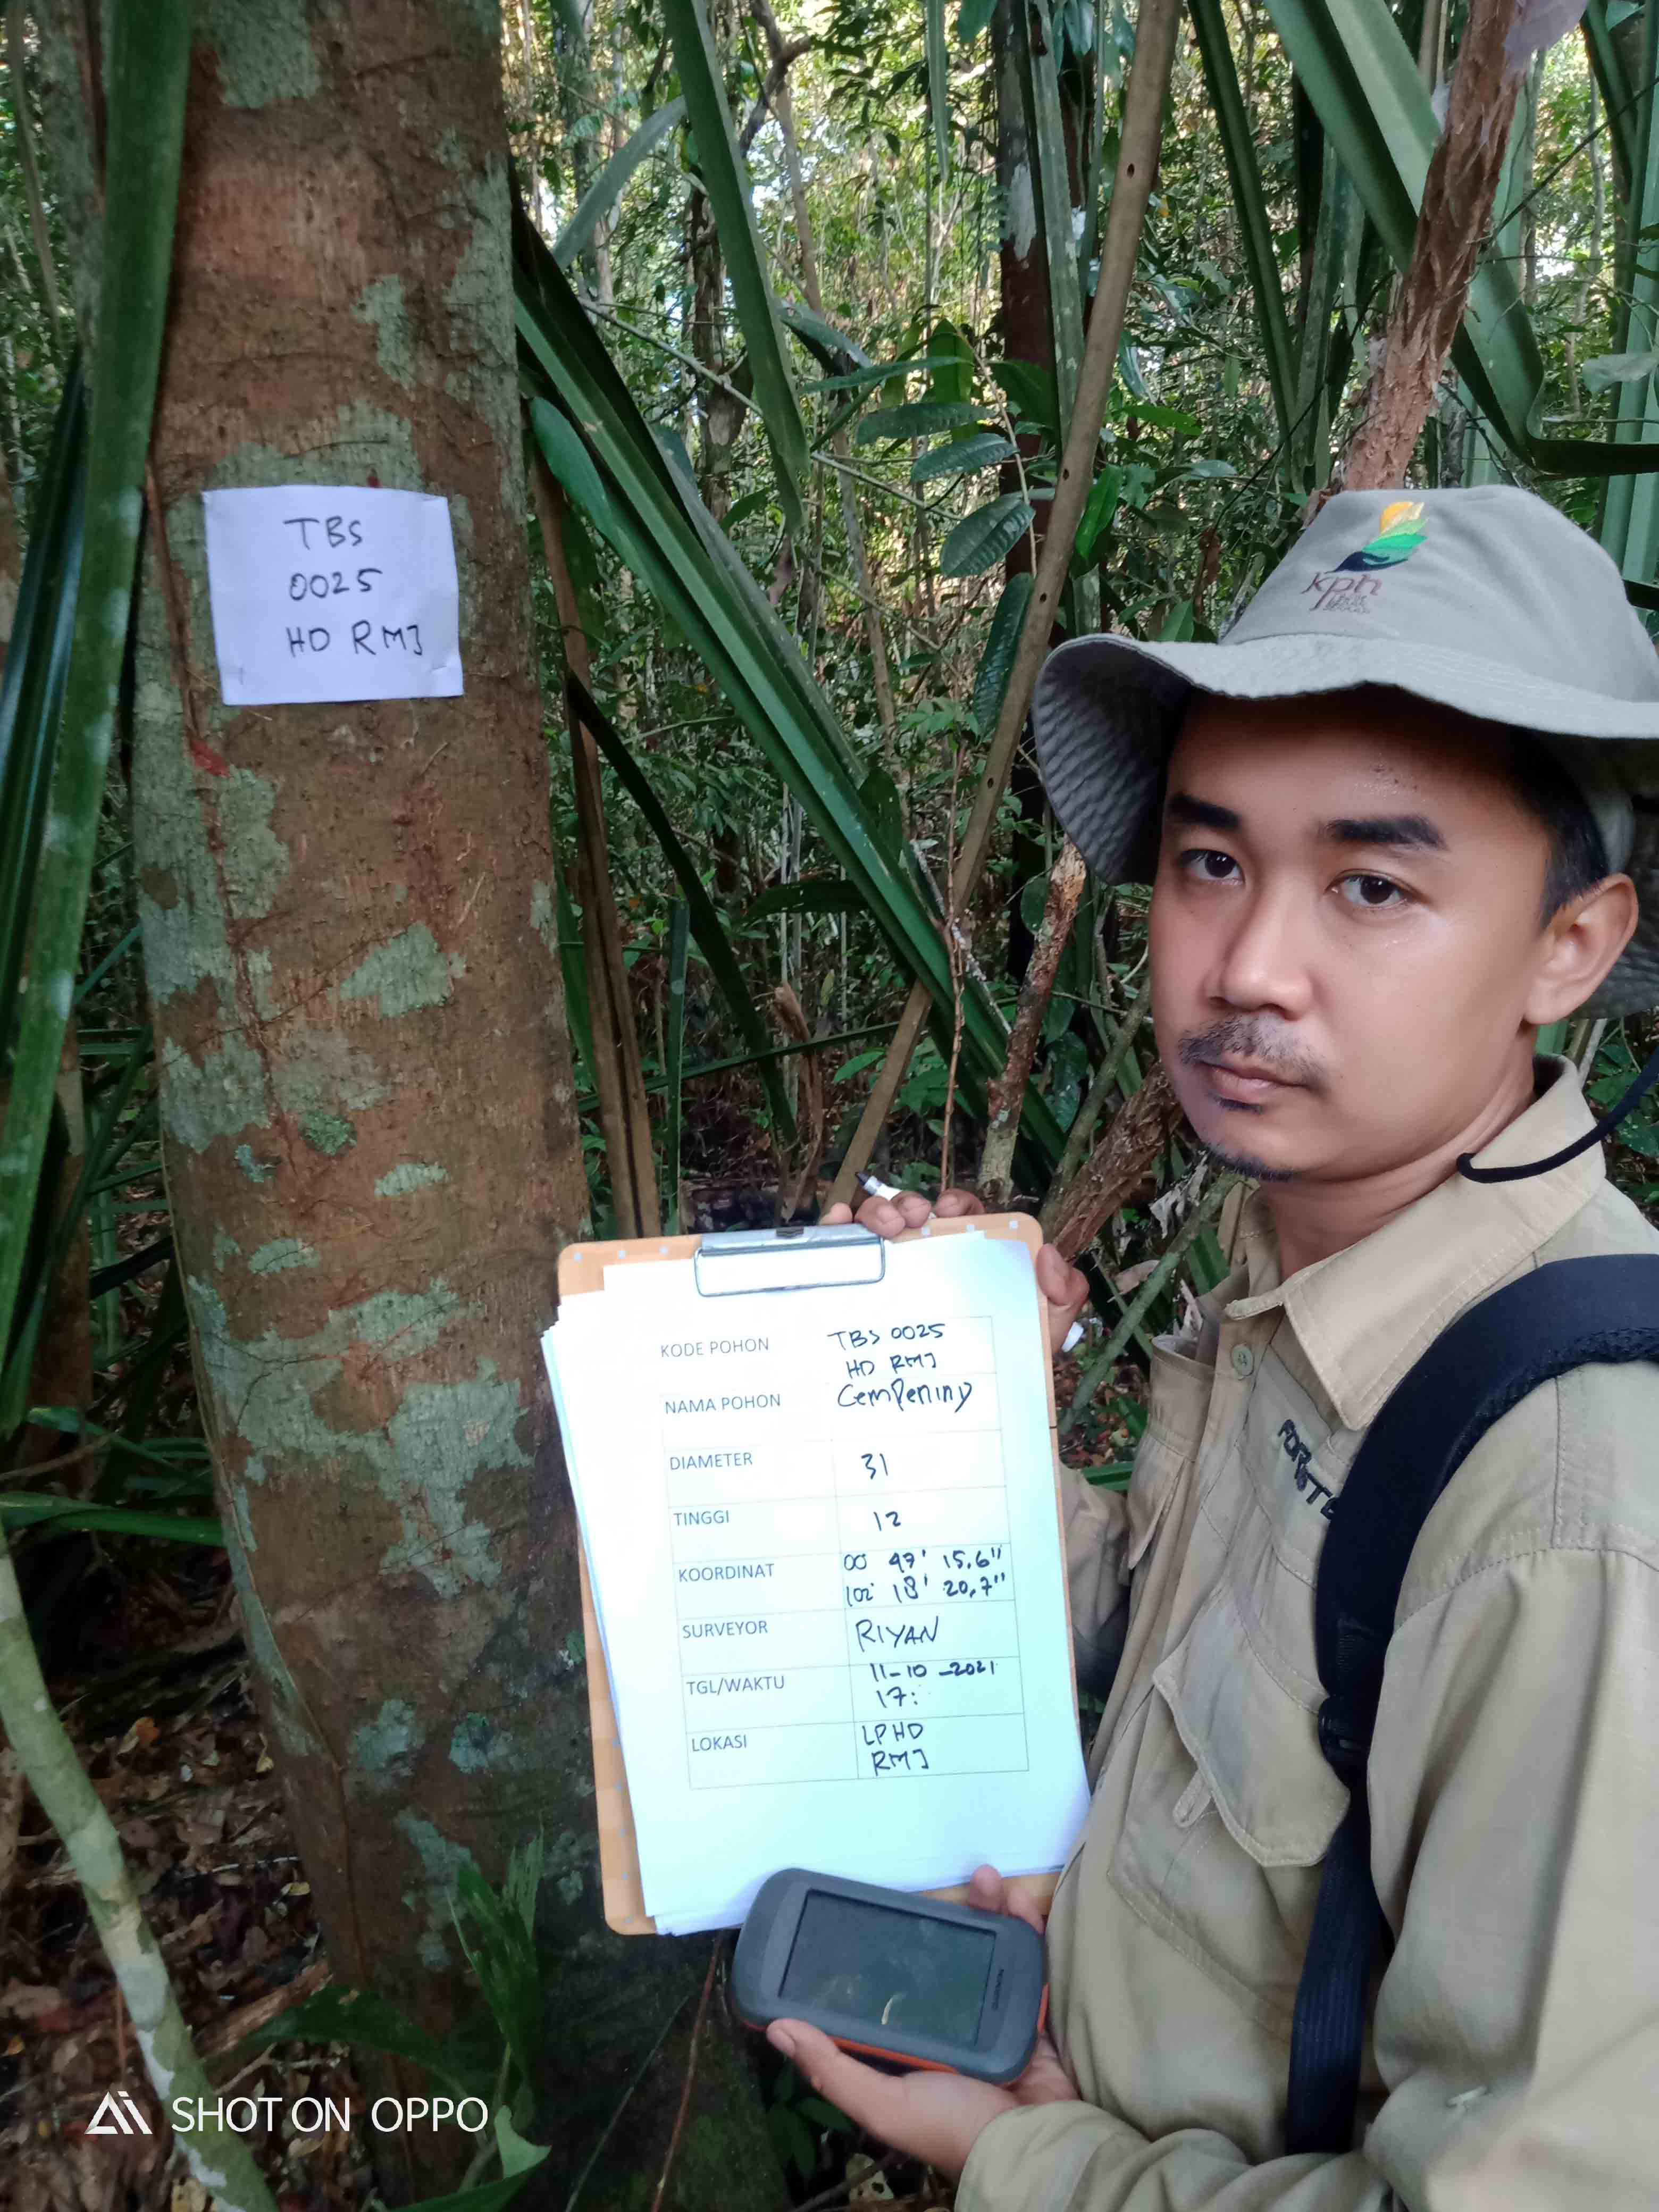 TBS
0025
HD RMJ
kph
FORESTE
KODE POHON TBS 0025
HD RMJ
NAMA POHON Cempening
DIAMETER 31
TINGGI 12
KOORDINAT 00° 47' 15.6"
102° 18' 20,7"
SURVEYOR RIYAN
TGL/WAKTU 11-10-2021
17:
LOKASI LPHD
RMJ
SHOT ON OPPO